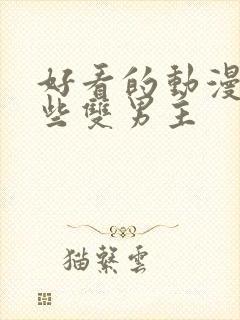 好看的動漫
些雙男主
猫繫雲